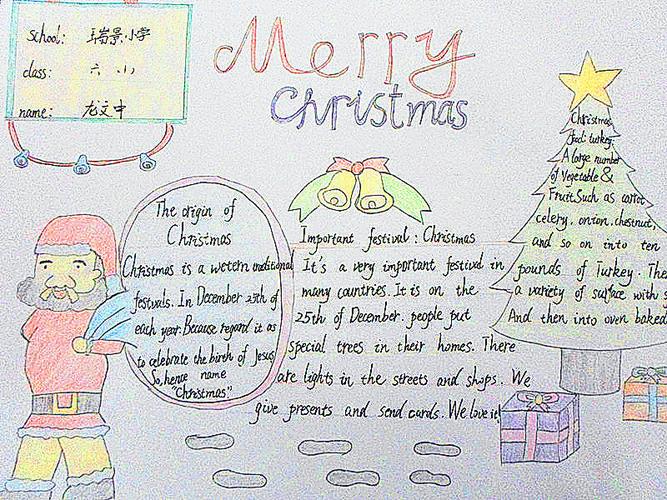 school: 瑞景小学
class: 六（1）
name: 龙文中
Merry
Christmas
The origin of
Christmas
Christmas is a wetern traditional
festivals. In December 25th of
each year. Because regard it as
to celebrate the birth of Jesus
So, hence name
"Christmas"
Important festival: Christmas
It's a very important festival in
many countries. It is on the
25th of December. people put
special trees in their homes. There
are lights in the streets and shops. We
give presents and send cards. We love it!
Christmas
food: turkey.
A large number
of Vegetable &
Fruit. Such as carrot,
celery, onion, chestnut,
and so on into ten
pounds of Turkey. The
a variety of surface with s
And then into oven baked